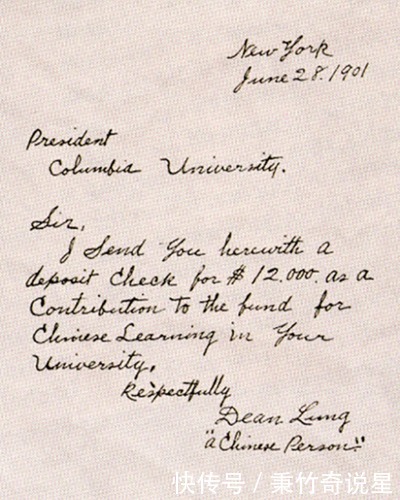 New York
June 28. 1901
President
Columbia University.
Sir,
I Send You herewith a
deposit Check for $12.000. as a
Contribution to the fund for
Chinese Learning in Your
University.
Respectfully
Dean Lung
"a Chinese Person."
快传号 / 秉竹奇说星